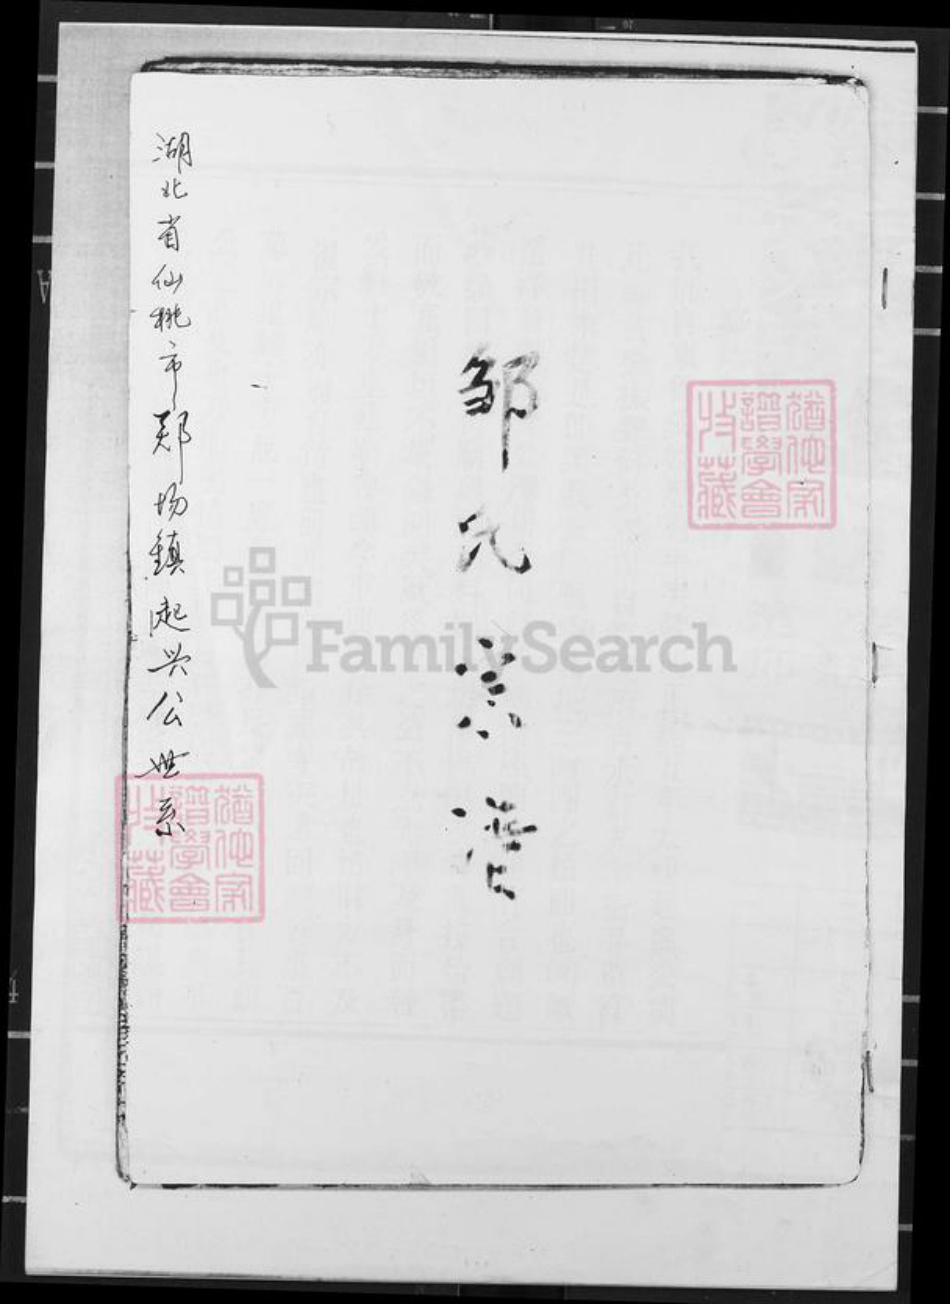 邹氏宗谱
湖北省仙桃市郑场鎮起兴公世系
譜學會
收藏
譜學會
收藏
FamilySearch